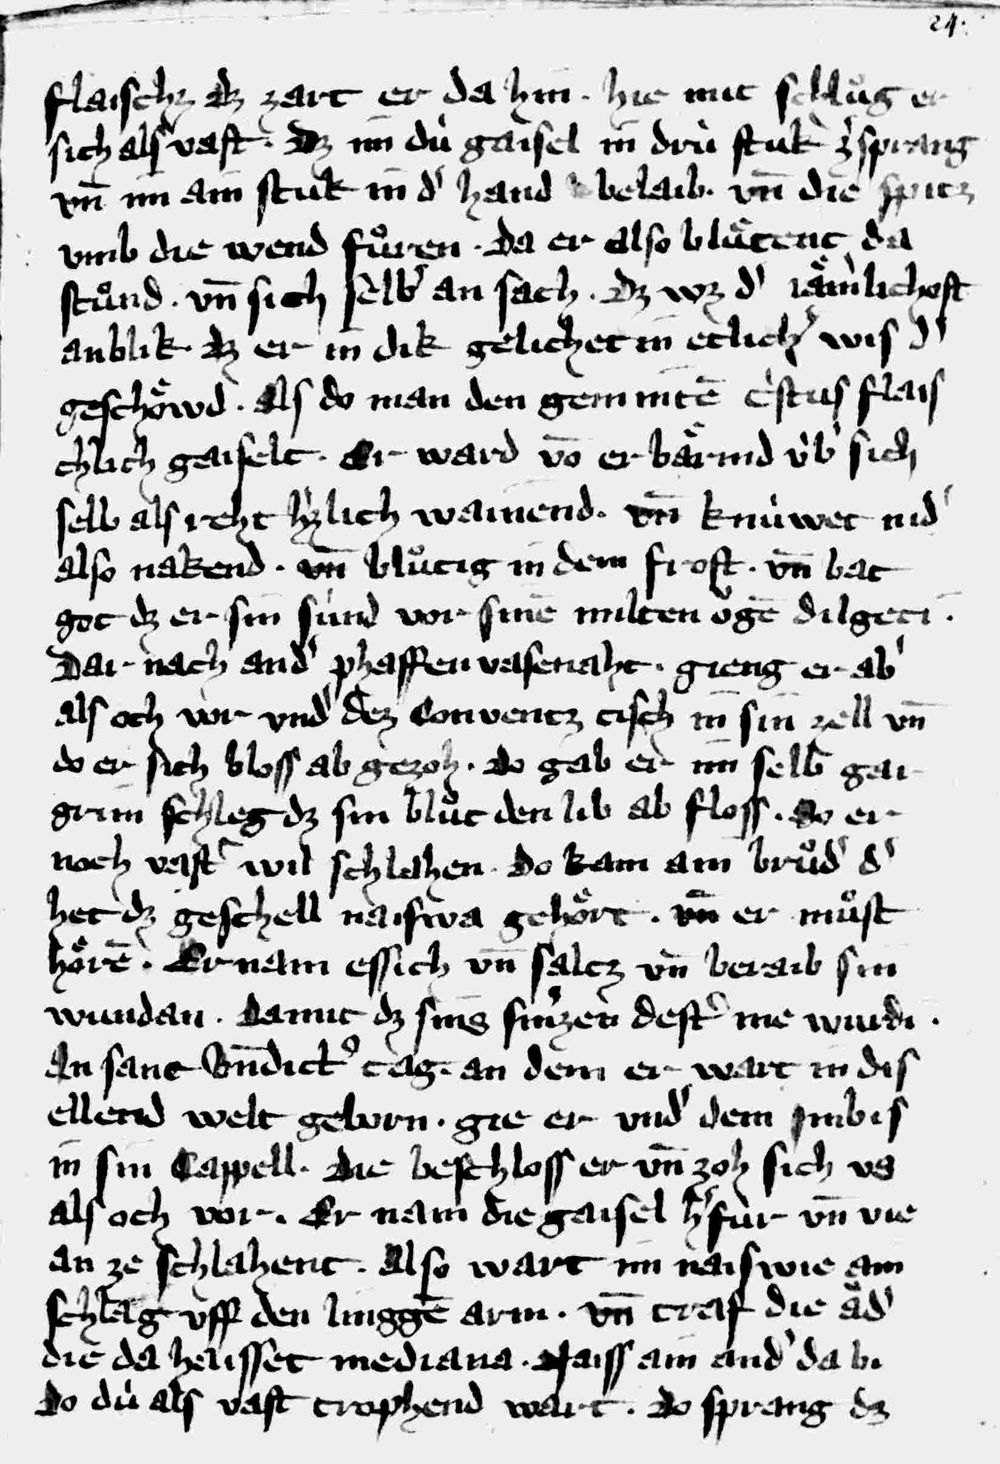 24.
flaischz dz zart er da hin. hie mit schlůg er
sich als vast. Dz im dú gaisel in drú stuk zsprang
vn̄ im ain stuk in d' hand belaib. vn̄ die spitz
vmb die wend fůren. Da er also blůtent da
stůnd. vn̄ sich selb' an sach. dz wz d' iämlichost
anblik. dz er in dik gelichet in etlich' wis d'
geschöwd. Als do man den gemintē cristus flais
chlich gaiselt. Er ward vō erbärmd vb' sich
selb als reht hzlich wainend. vn̄ knúwet nid'
also nakend. vn̄ blůtig in dem frost. vn̄ bat
got dz er sin súnd vor sinē milten ogē dilgeti.
Dar nach and' phaffen vasenaht. gieng er ab'
als och vor vnd' dez Conventz tisch in sin zell vn̄
do er sich bloss ab gezoh. do gab er im selb gar
grim schleg dz sin blůt den lib ab floss. do er
noch vast' wil schlahen. Do kam ain brůd' d'
het dz geschell naiswa gehört. vn̄ er můst
hörē. Er nam essich vn̄ saltz vn̄ beraib sin
wundan. Damit dz sins smzen dest' me wurdi.
An sant Bn̄dict9 tag. an dem er wart in dis
ellend welt geborn. gie er vnd' dem Jmbis
in sin Cappell. Die beschloss er vn̄ zoh sich vs
als och vor. Er nam die gaisel h'fúr vn̄ vie
an ze schlahent. Also wart im naiswie ain
schlag vff den linggē arm. vn̄ traf die åd'
die da haisset mediana. Naiss ain and' da bi
Do dú als vast trophend wart. do sprang dz